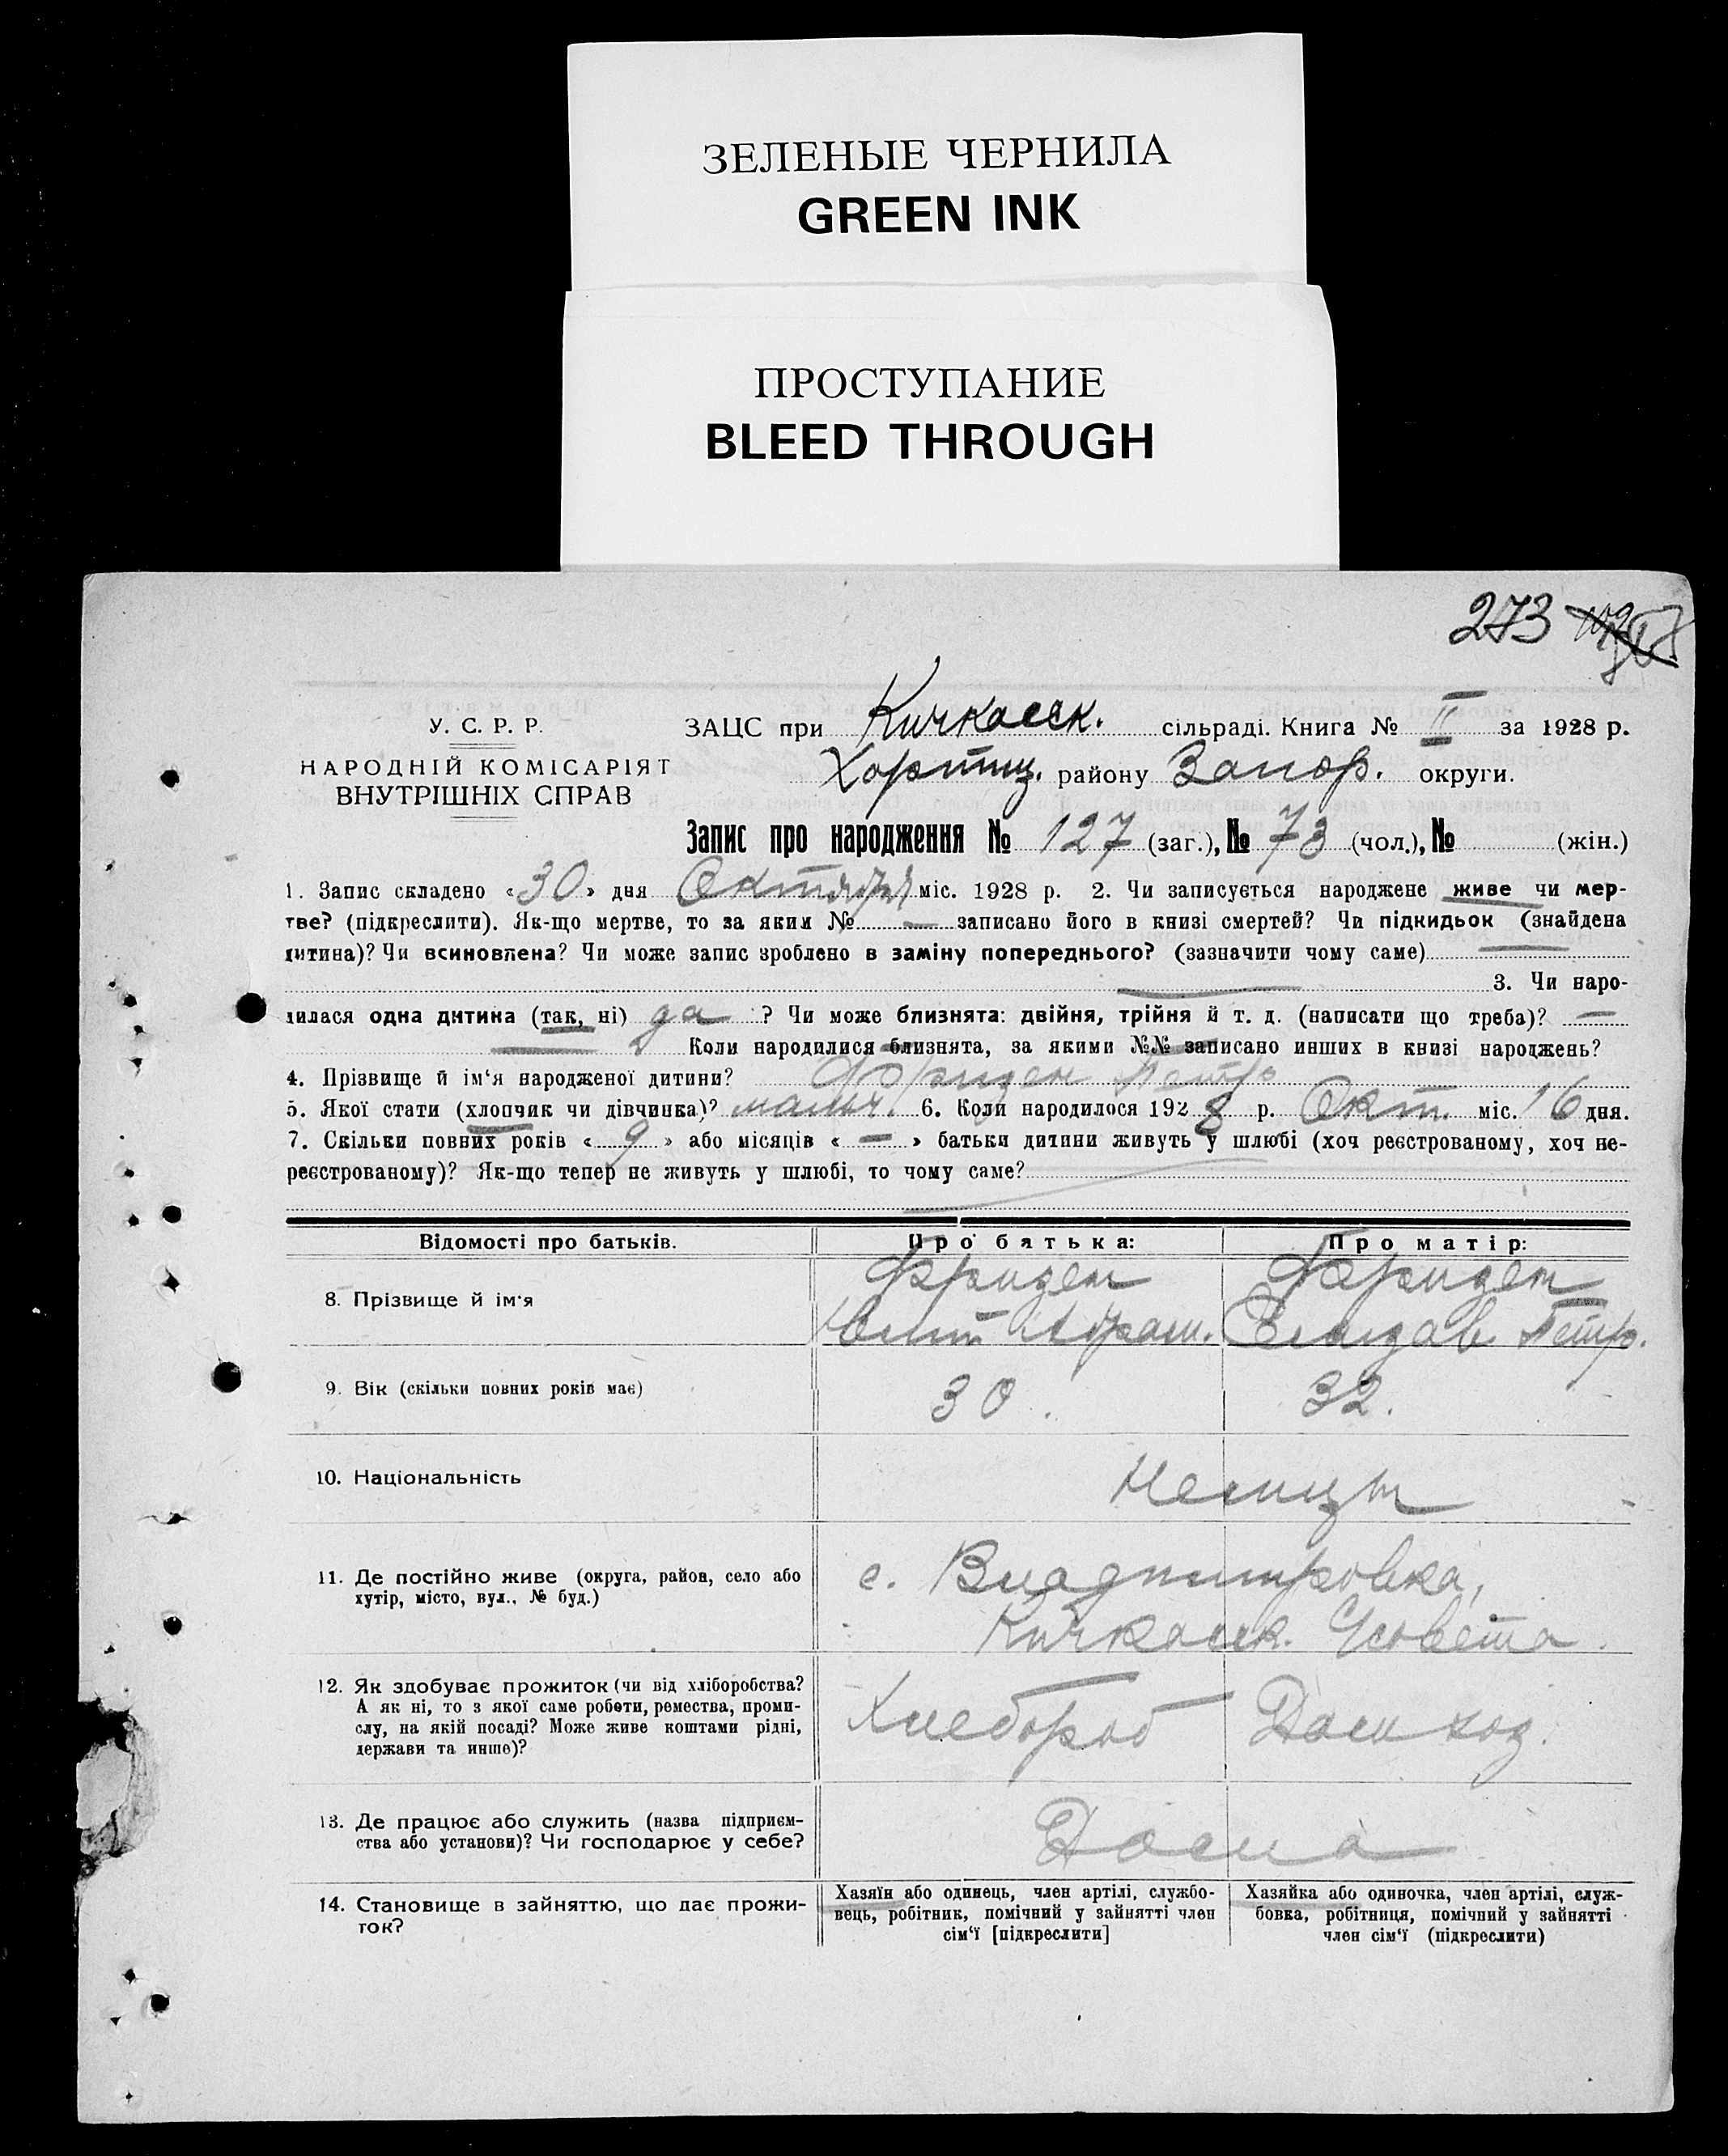 ЗЕЛЕНЫЕ ЧЕРНИЛА
GREEN INK
ПРОСТУПАНИЕ
BLEED THROUGH
273
У. С. Р. Р.
НАРОДНІЙ КОМІСАРІЯТ
ВНУТРІШНІХ СПРАВ
ЗАЦС при Кичкасск. сільраді. Книга № II за 1928 р.
Хортиц. району Запор. округи.
Запис про народження № 127 (заг.), № 73 (чол.), № (жін.)
1. Запис складено «30» дня Октября міс. 1928 р. 2. Чи записується народжене живе чи мер-
тве? (підкреслити). Як-що мертве, то за яким № — записано його в книзі смертей? Чи підкидьок (знайдена
дитина)? Чи всиновлена? Чи може запис зроблено в заміну попереднього? (зазначити чому саме) —
— 3. Чи наро-
дилася одна дитина (так, ні) да ? Чи може близнята: двійня, трійня й т. д. (написати що треба)? —
— Коли народилися близнята, за якими №№ записано инших в книзі народжень?
4. Прізвище й ім‘я народженої дитини? Фризен Петр
5. Якої стати (хлопчик чи дівчинка)? мальч. 6. Коли народилося 1928 р. Окт. міс. 16 дня.
7. Скільки повних років «9» або місяців «—» батьки дитини живуть у шлюбі (хоч реєстрованому, хоч не-
реєстрованому)? Як-що тепер не живуть у шлюбі, то чому саме?
Відомості про батьків. Про батька: Про матір:
8. Прізвище й ім‘я
Фризен Фризен
Абрам. Елизав. Петр.
9. Вік (скільки повних років має) 30. 32.
10. Національність Немцы
11. Де постійно живе (округа, район, село або
хутір, місто, вул., № буд.)
с. Владимировка,
Кичкасск. с/совета.
12. Як здобуває прожиток (чи від хліборобства?
А як ні, то з якої саме роботи, ремества, проми-
слу, на якій посаді? Може живе коштами рідні,
держави та инше)?
Хлебороб Дом хоз.
13. Де працює або служить (назва підприєм-
ства або установи)? Чи господарює у себе?
Дома
14. Становище в зайняттю, що дає прожи-
ток?
Хазяїн або одинець, член артілі, службо-
вець, робітник, помічний у зайнятті член
сім‘ї [підкреслити]
Хазяйка або одиночка, член артілі, служ-
бовка, робітниця, помічний у зайнятті
член сім‘ї (підкреслити)